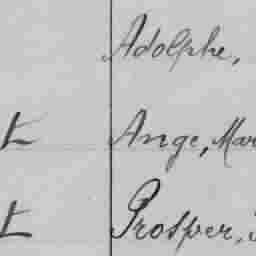 Adolphe,
t Ange, Mar
t Prosper,